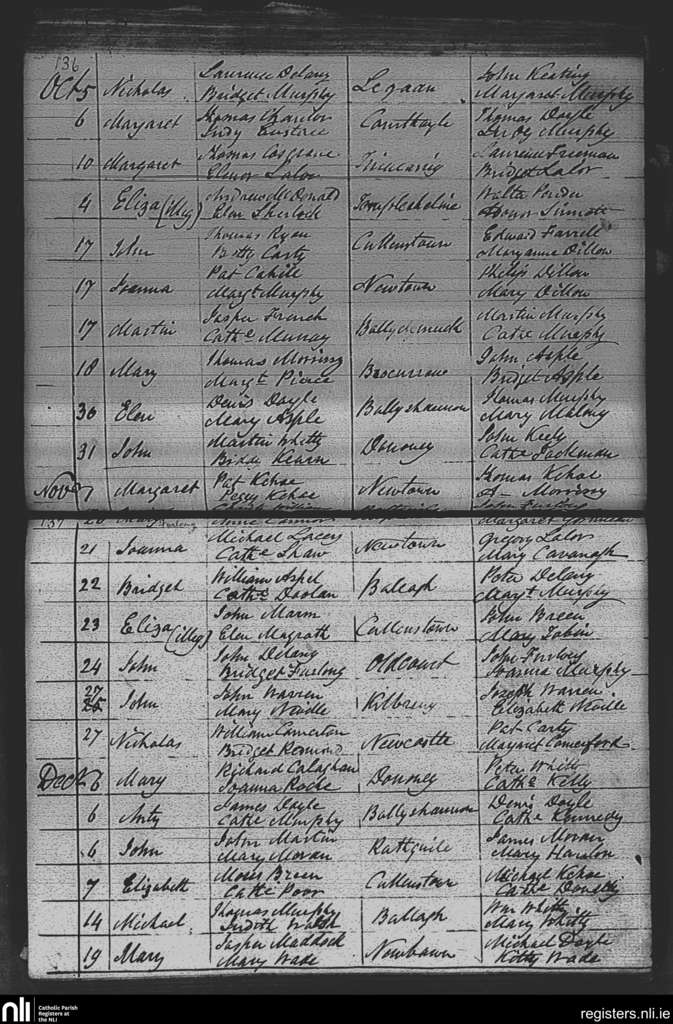 136
Octr 5 Nicholas Laurence Delany Legaan John Keating
Bridget Murphy Margaret Murphy
6 Margaret Thomas Thomas Doyle
Judy Murphy
10 Margaret Thomas Cosgrave Laurence
Elenor Lalor Bridget Lalor
4 Eliza (illeg) Andrew McDonald Templeshelin Walter Power
Elen Sherlock Sinnott
17 John Thomas Ryan Cullenstown Edward Farrell
Betty Carty Maryanne Dillon
17 Joanna Pat Cahill Newtown Philip Dillon
Margt Murphy Mary Dillon
17 Martin Jasper French Martin Murphy
Cathe Murray Cathe Murphy
18 Mary Thomas Morrissy John Asple
Margt Pierce Bridget Asple
30 Elen Denis Doyle Ballyshannon Thomas Murphy
Mary Asple Mary Malony
31 John Martin Whitty Dononey John Kelly
Biddi Kearn Cathe Jackman
Novr 7 Margaret Pat Kehoe Newtown Thomas Kehoe
Peggy Kehoe A— Morrissy
137 20 Mary Furlong John Furlong
Anne Connor Margaret
21 Joanna Michael Lacey Newtown Gregory Lalor
Cathe Shaw Mary Cavanagh
22 Bridget William Aspel Baleagh Peter Delany
Cathe Doolan Margt Murphy
23 Eliza (illeg) John Marm Cullenstown John Breen
Elen Magrath Mary Tobin
24 John John Delany Oldcourt John Furlong
Bridget Furlong Joanna Murphy
27 25 John John Warren Kilbreny Joseph Warren
Mary Neville Elizabeth Neville
27 Nicholas William Comerton Newcastle Pat Carty
Bridget Redmond Margaret Comerford
Decr 6 Mary Richard Calaghan Dononey Peter Whitty
Joanna Roche Cathe Kelly
6 Anty James Doyle Ballyshannon Denis Doyle
Cathe Murphy Cathe Kennedy
6 John John Martin Rathguile James Moran
Mary Moran Mary Hanlon
7 Elizabeth Moses Breen Cullenstown Michael Kehoe
Cathe Poor Cathe
14 Michael Thomas Murphy Ballagh Wm Whitty
Judith Walsh Mary Whitty
19 Mary Jasper Maddock Newbawn Michael Doyle
Mary Wade Kitty Wade
nli Catholic Parish
Registers at
the NLI
registers.nli.ie